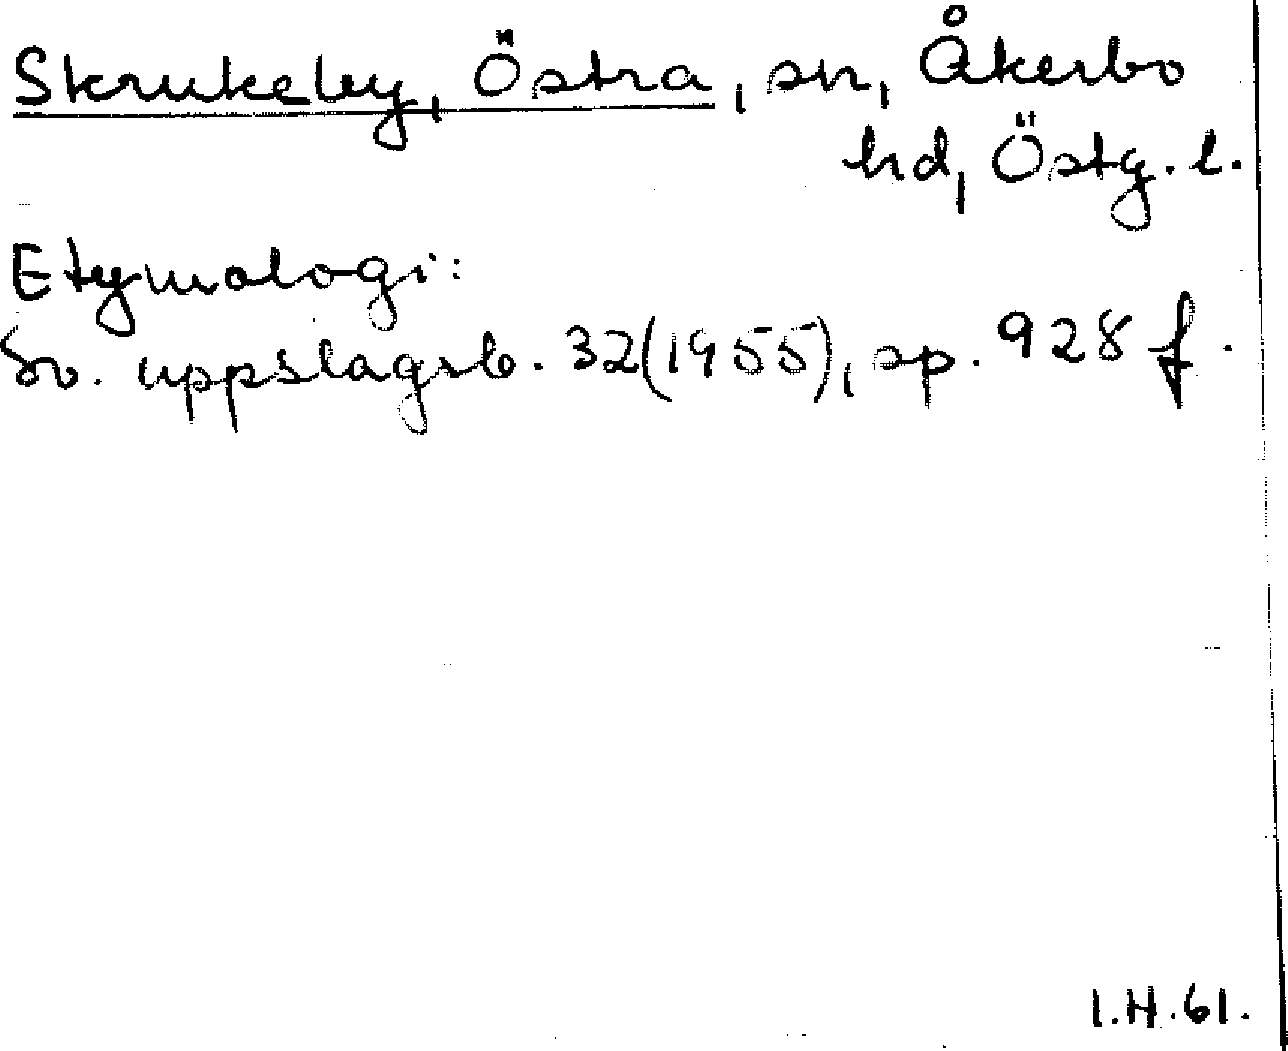 Skrukeby, Östra, sn, Åkerbo
hd, Östg. l.
Etymologi:
Sv. uppslagsb. 32(1955), sp. 928 f.
I.H.61.